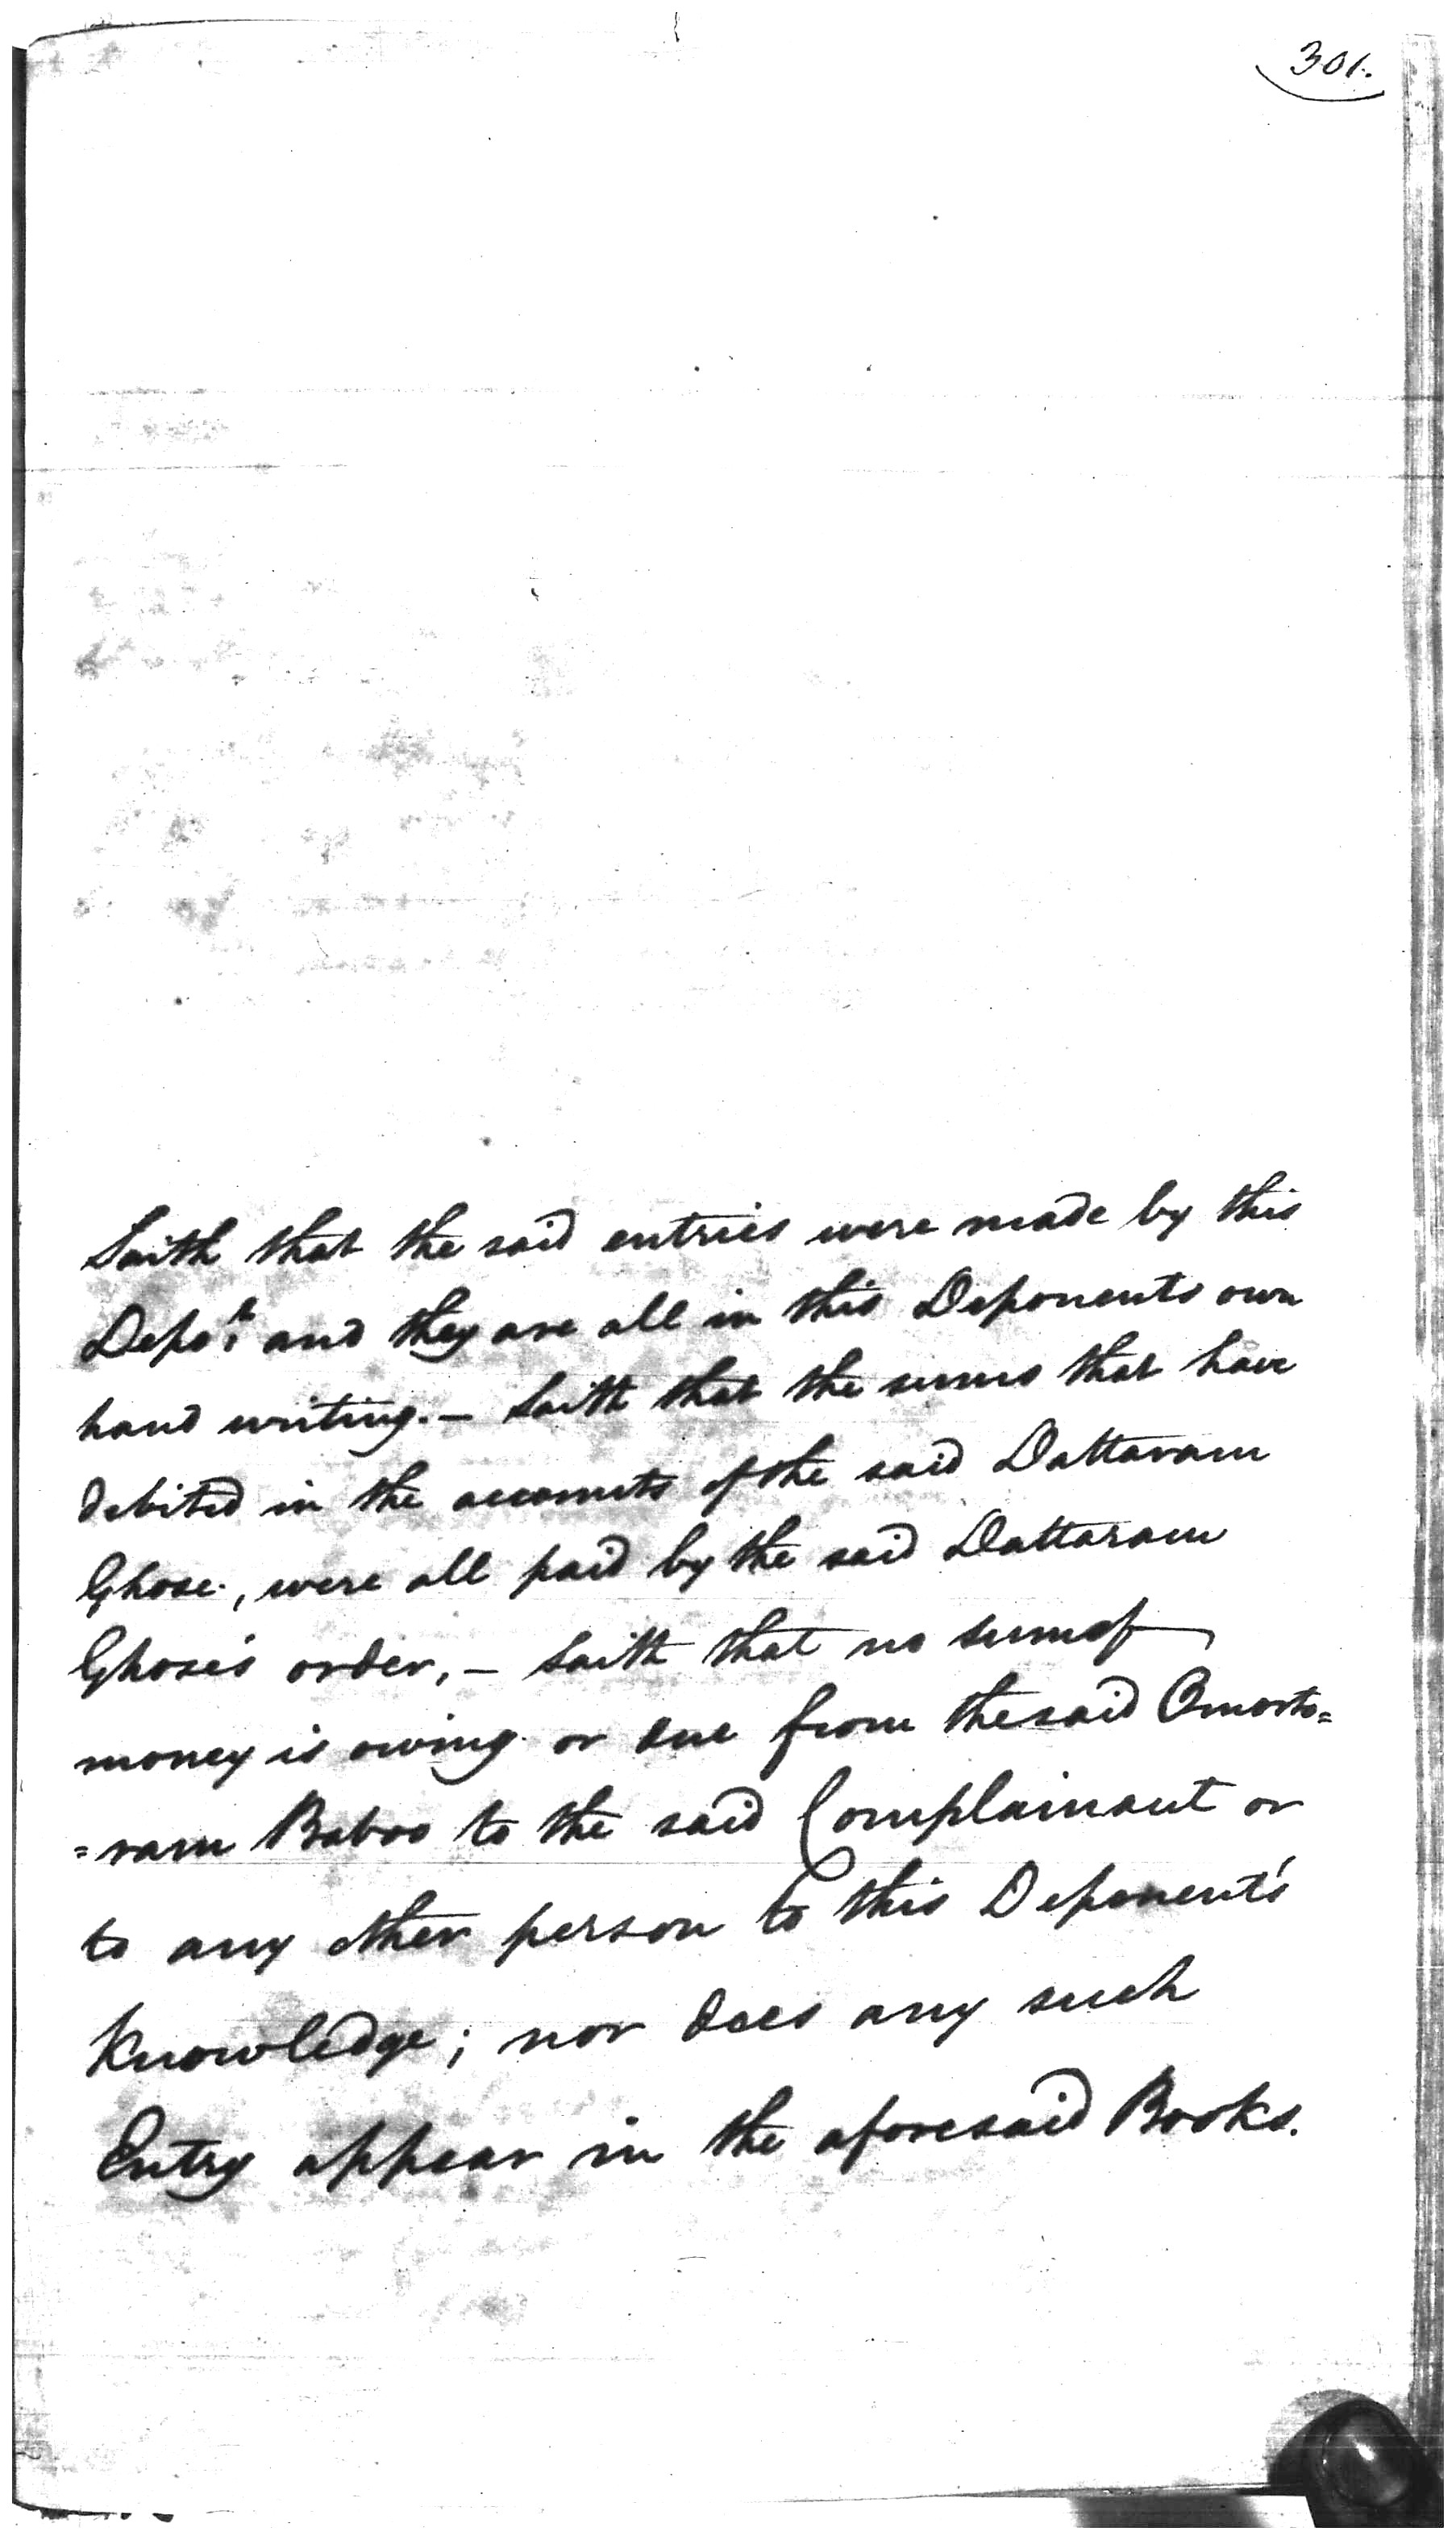 301.
Saith that the said entries were made by this
Depo.t and they are all in this Deponents own
hand writing. — Saith that the sums that have
debited in the accounts of the said Dattaram
Ghose., were all paid by the said Dattaram
Ghose's order, — Saith that no sum of
money is owing or due from the said Omorto=
=ram Baboo to the said Complainant or
to any other person to this Deponent's
Knowledge; nor does any such
Entry appear in the aforesaid Books.